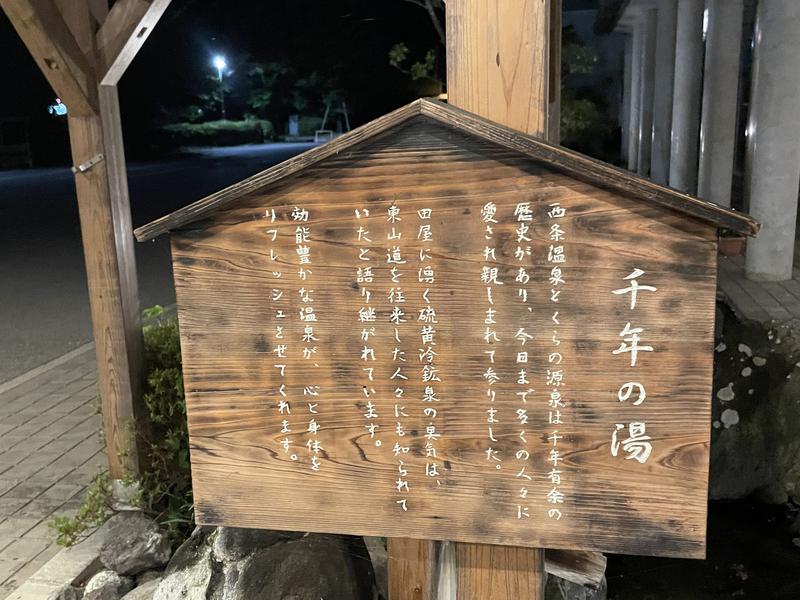 千年の湯
西条温泉とくらの源泉は千年有余の
歴史があり、今日まで多くの人々に
愛され親しまれて参りました。
田屋に湧く硫黄冷鉱泉の臭気は、
東山道を往来した人々にも知られて
いたと語り継がれています。
効能豊かな温泉が、心と身体を
リフレッシュさせてくれます。